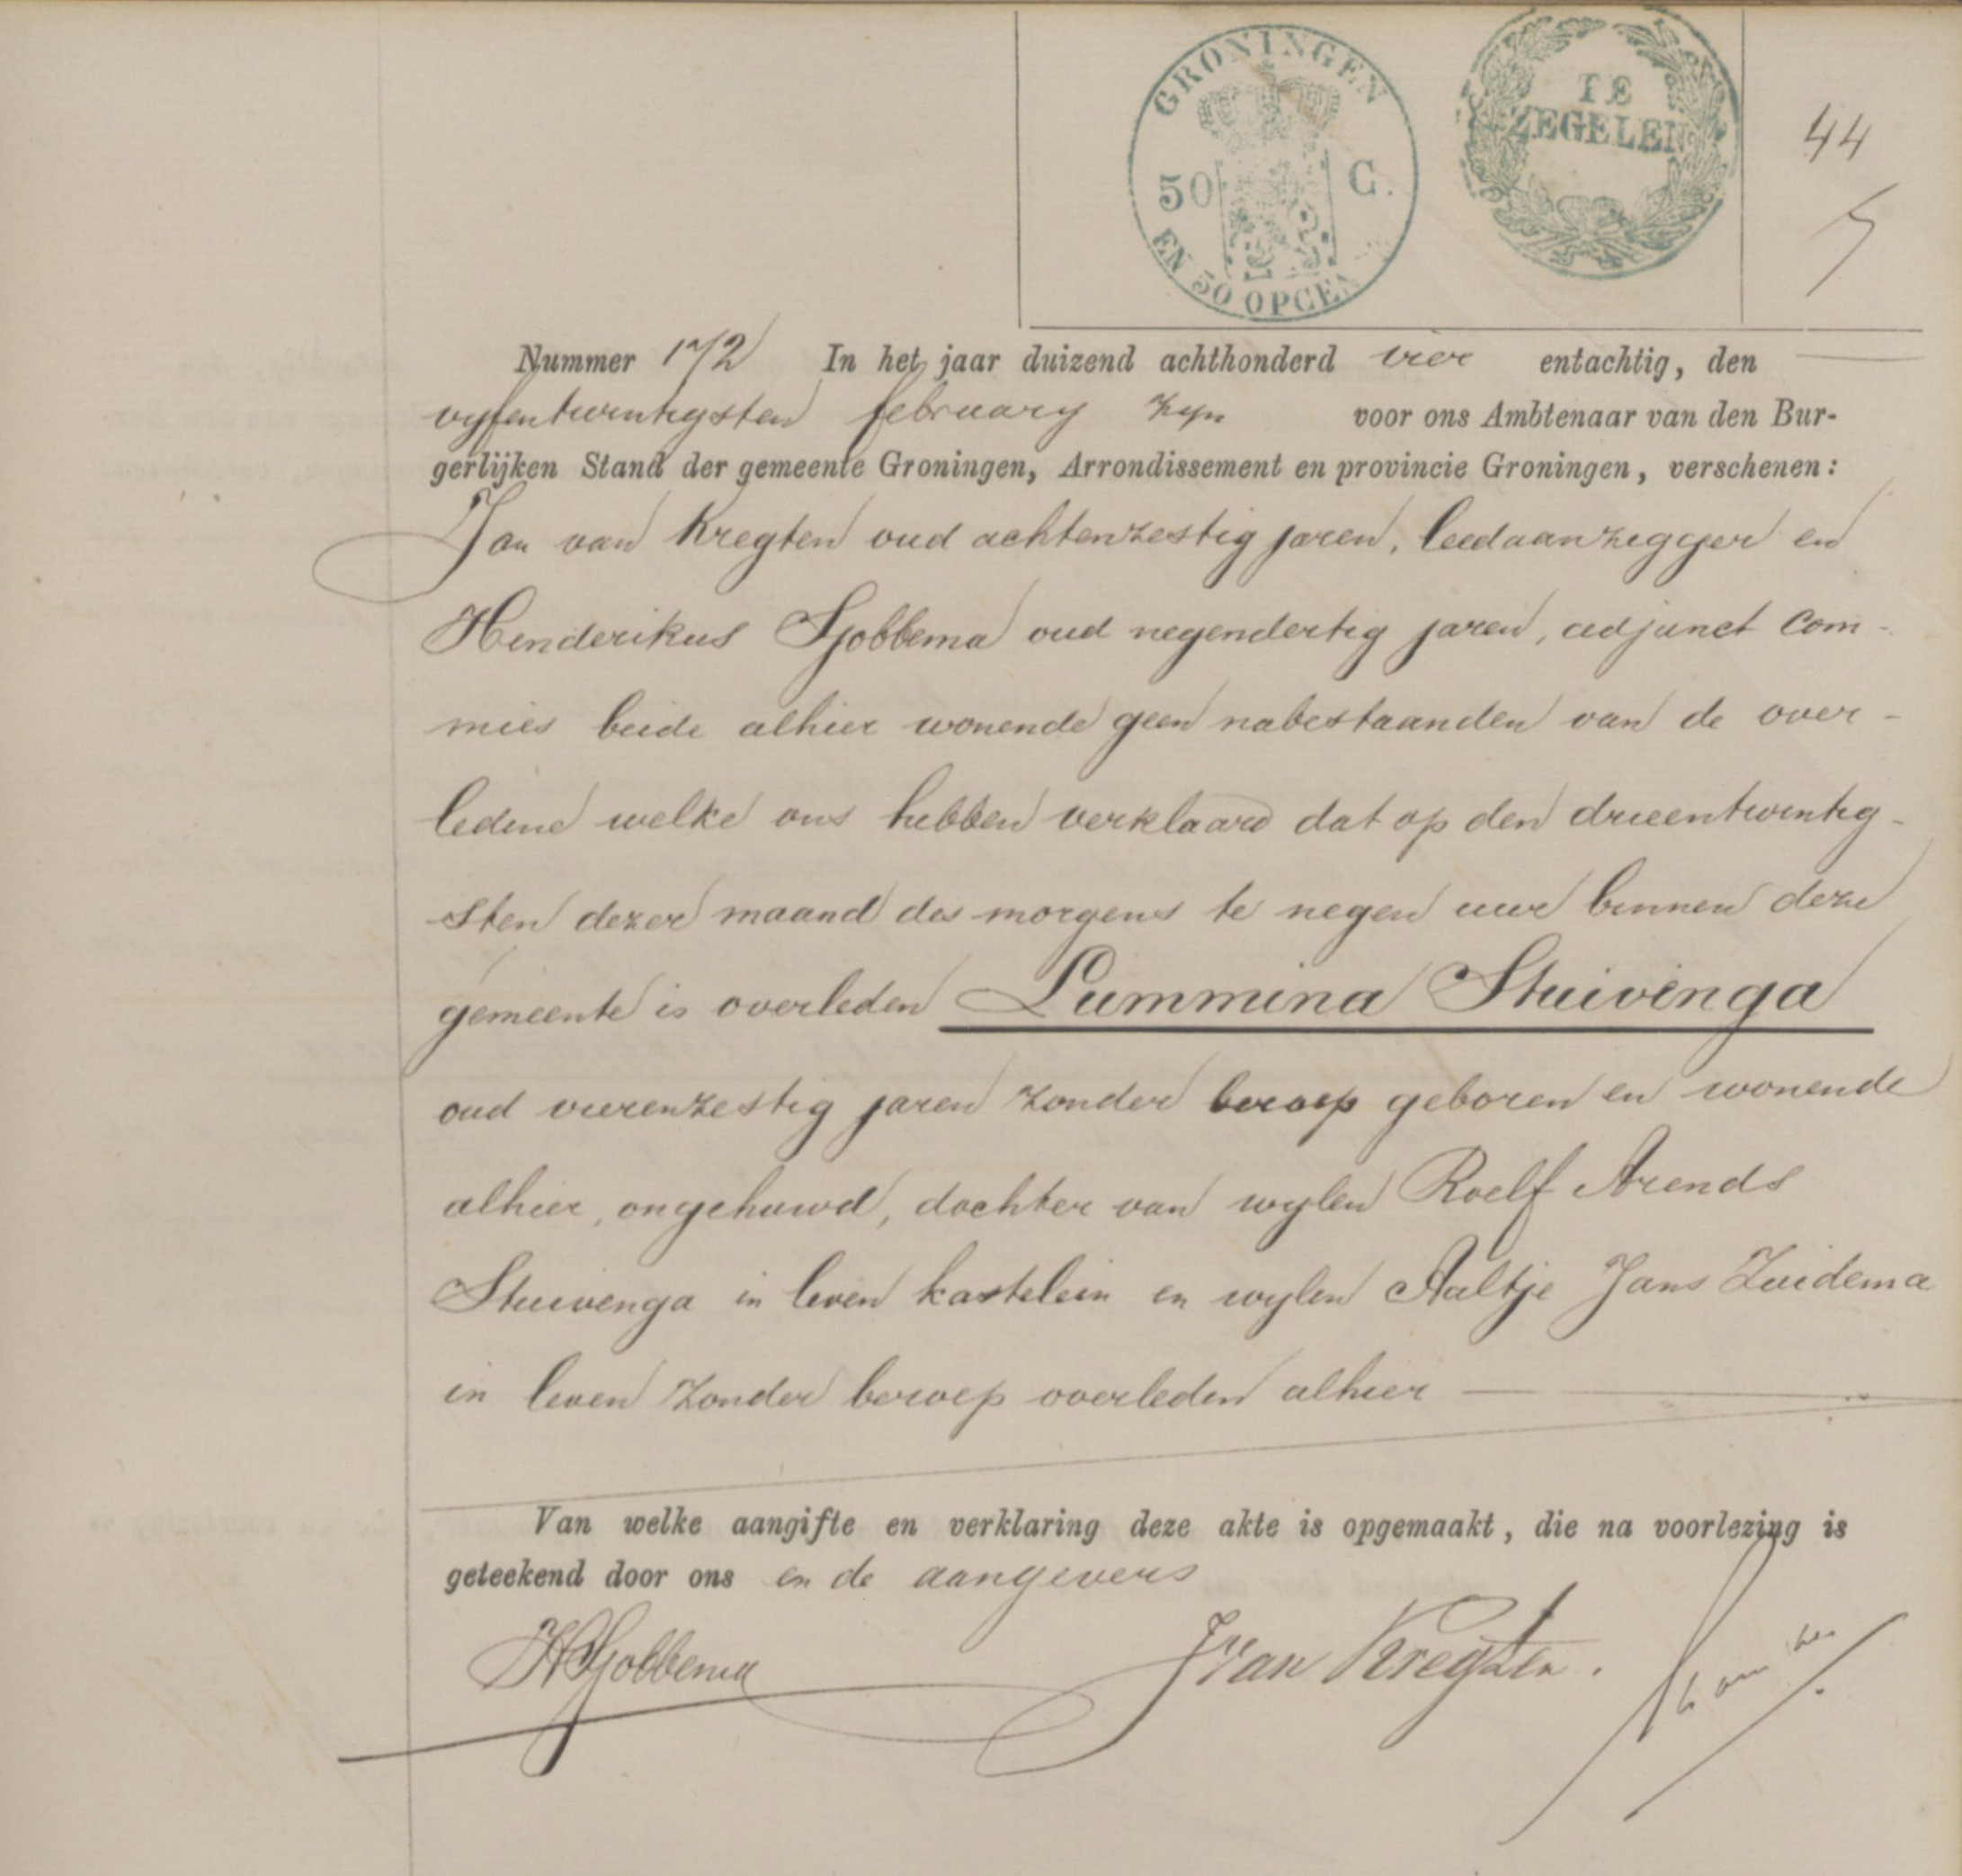 GRONINGEN
50 C.
EN 50 OPCEN
TE
ZEGELEN
44
Nummer 172 In het jaar duizend achthonderd vier entachtig, den
vyfentwintigsten february zyn voor ons Ambtenaar van den Bur-
gerlijken Stand der gemeente Groningen, Arrondissement en provincie Groningen, verschenen:
Jan van Kregten oud achtenzestig jaren, leedaanzegger en
Henderikus Sjobbema oud negendertig jaren, adjunct com-
mies beide alhier wonende geen nabestaanden van de over-
ledene welke ons hebben verklaard dat op den drieentwintig-
sten dezer maand des morgens te negen uur binnen deze
gemeente is overleden Lummina Stuivinga
oud vierenzestig jaren zonder beroep geboren en wonende
alhier, ongehuwd, dochter van wylen Roelf Arends
Stuivenga in leven kastelein en wylen Aaltje Jans Zuidema
in leven zonder beroep overleden alhier
Van welke aangifte en verklaring deze akte is opgemaakt, die na voorlezing is
geteekend door ons en de aangevers
HSjobbema JVan Kregten.